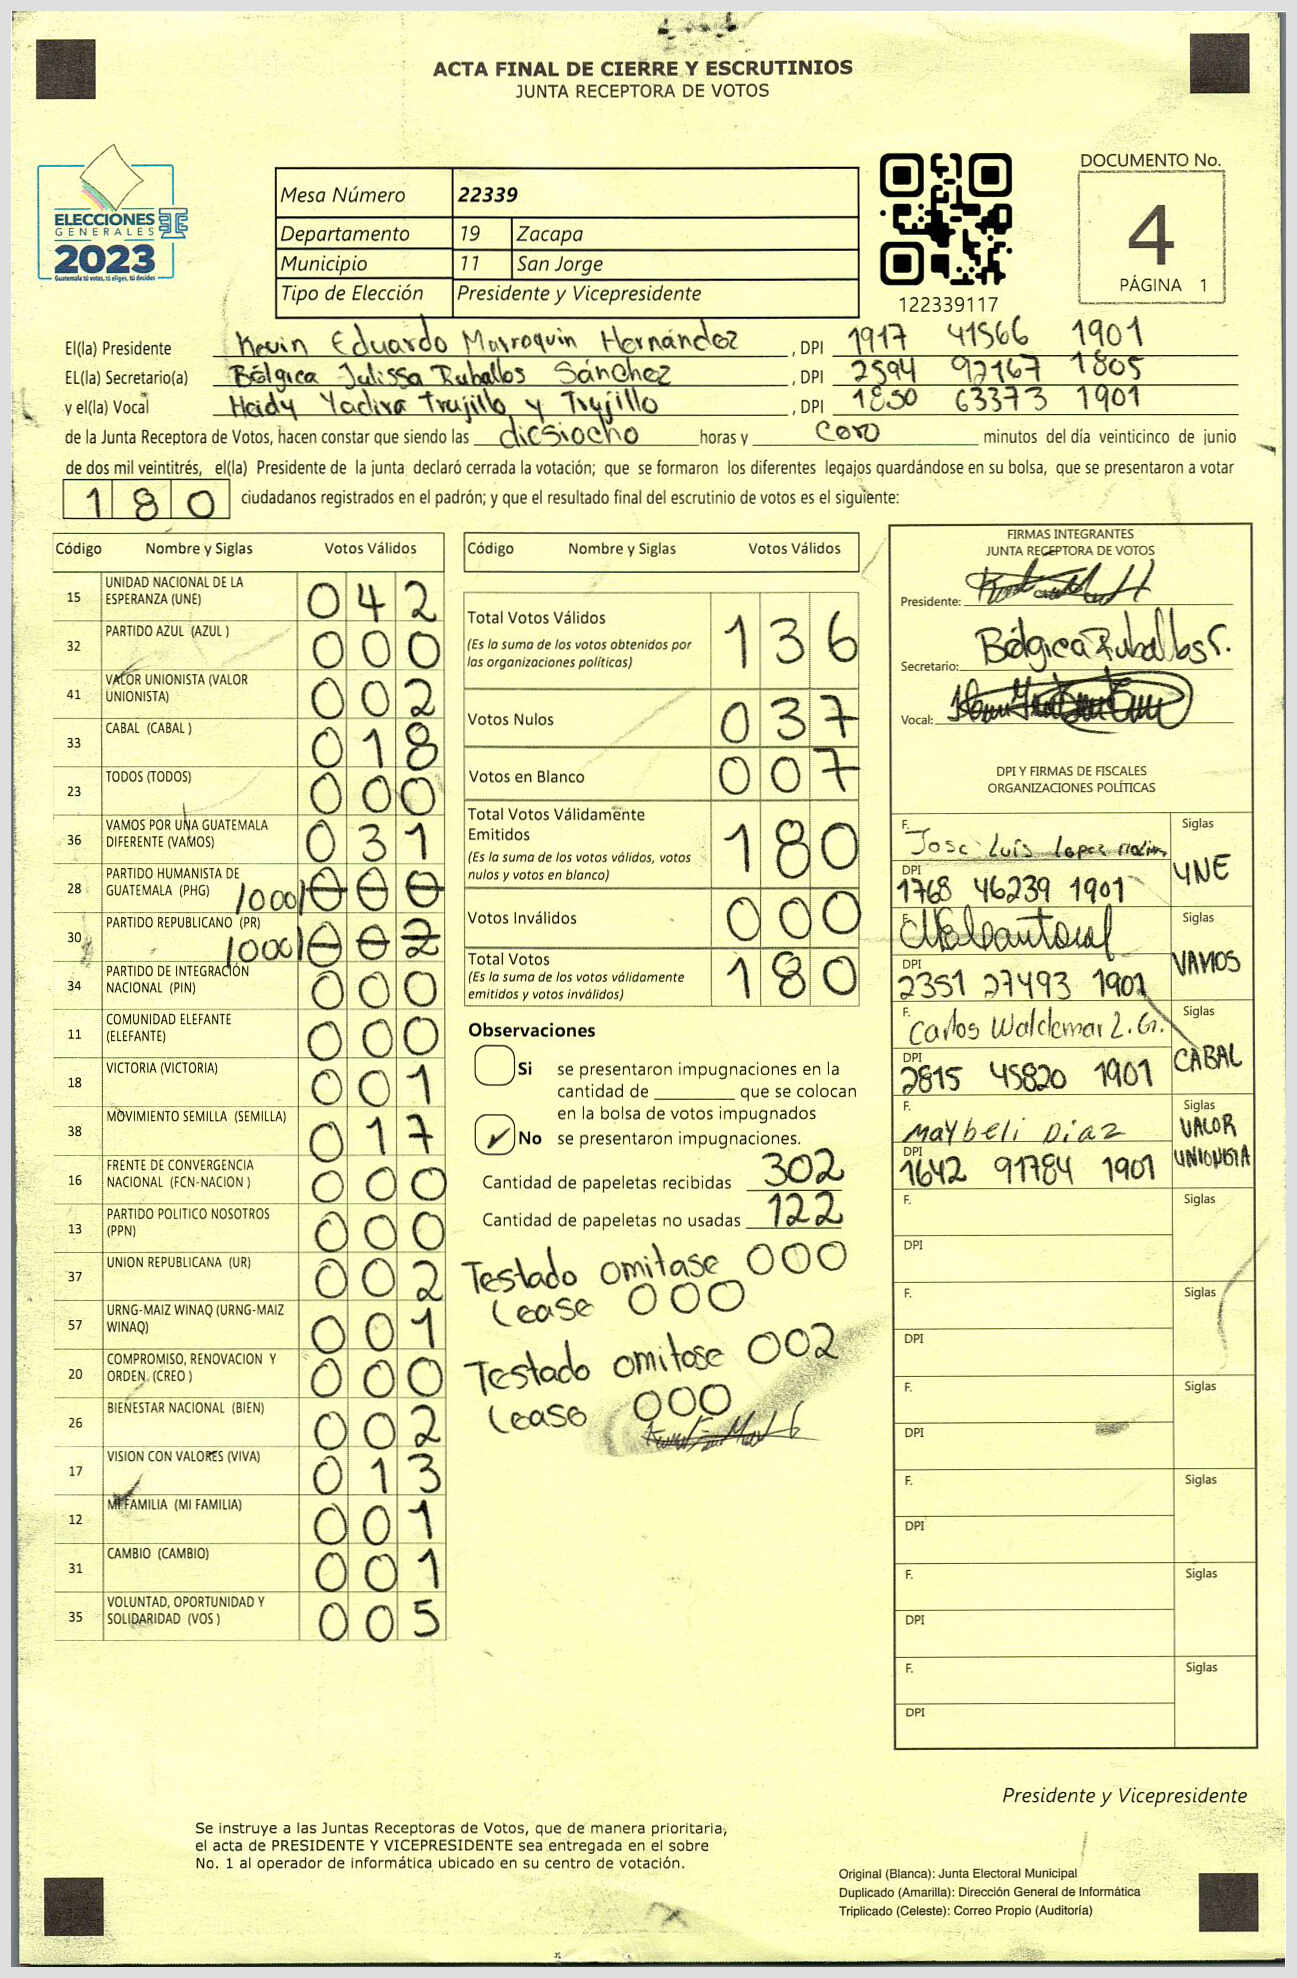 ACTA FINAL DE CIERRE Y ESCRUTINIOS
JUNTA RECEPTORA DE VOTOS
ELECCIONES
GENERALES
2023
Guatemala tú votas, tú eliges, tú decides
Mesa Número 22339
Departamento 19 Zacapa
Municipio 11 San Jorge
Tipo de Elección Presidente y Vicepresidente
122339117
DOCUMENTO No.
4
PÁGINA 1
El(la) Presidente Kevin Eduardo Marroquin Hernández , DPI 1917 41566 1901
EL(la) Secretario(a) Bélgica Julissa Ruballos Sánchez , DPI 2594 92167 1805
y el(la) Vocal Heidy Yadira Trujillo y Trujillo , DPI 1850 63373 1901
de la Junta Receptora de Votos, hacen constar que siendo las diesiocho horas y cero minutos del día veinticinco de junio
de dos mil veintitrés, el(la) Presidente de la junta declaró cerrada la votación; que se formaron los diferentes legajos guardándose en su bolsa, que se presentaron a votar
180 ciudadanos registrados en el padrón; y que el resultado final del escrutinio de votos es el siguiente:
Código Nombre y Siglas Votos Válidos
15 UNIDAD NACIONAL DE LA ESPERANZA (UNE) 042
32 PARTIDO AZUL (AZUL ) 000
41 VALOR UNIONISTA (VALOR UNIONISTA) 002
33 CABAL (CABAL ) 018
23 TODOS (TODOS) 000
36 VAMOS POR UNA GUATEMALA DIFERENTE (VAMOS) 031
28 PARTIDO HUMANISTA DE GUATEMALA (PHG) 1000 | 000
30 PARTIDO REPUBLICANO (PR) 1000 | 002
34 PARTIDO DE INTEGRACIÓN NACIONAL (PIN) 000
11 COMUNIDAD ELEFANTE (ELEFANTE) 000
18 VICTORIA (VICTORIA) 001
38 MOVIMIENTO SEMILLA (SEMILLA) 017
16 FRENTE DE CONVERGENCIA NACIONAL (FCN-NACION ) 000
13 PARTIDO POLITICO NOSOTROS (PPN) 000
37 UNION REPUBLICANA (UR) 002
57 URNG-MAIZ WINAQ (URNG-MAIZ WINAQ) 001
20 COMPROMISO, RENOVACION Y ORDEN (CREO ) 000
26 BIENESTAR NACIONAL (BIEN) 002
17 VISION CON VALORES (VIVA) 013
12 MI FAMILIA (MI FAMILIA) 001
31 CAMBIO (CAMBIO) 001
35 VOLUNTAD, OPORTUNIDAD Y SOLIDARIDAD (VOS ) 005
Código Nombre y Siglas Votos Válidos
Total Votos Válidos 136
(Es la suma de los votos obtenidos por
las organizaciones políticas)
Votos Nulos 037
Votos en Blanco 007
Total Votos Válidamente
Emitidos 180
(Es la suma de los votos válidos, votos
nulos y votos en blanco)
Votos Inválidos 000
Total Votos 180
(Es la suma de los votos válidamente
emitidos y votos inválidos)
Observaciones
Si se presentaron impugnaciones en la
cantidad de que se colocan
en la bolsa de votos impugnados
No se presentaron impugnaciones.
Cantidad de papeletas recibidas 302
Cantidad de papeletas no usadas 122
Testado omitase 000
Lease 000
Testado omitase 002
Lease 000
FIRMAS INTEGRANTES
JUNTA RECEPTORA DE VOTOS
Presidente:
Secretario: Bélgica Ruballos S.
Vocal:
DPI Y FIRMAS DE FISCALES
ORGANIZACIONES POLÍTICAS
F. Jose Luis Lopez Siglas
DPI UNE
1768 46239 1901
F. Siglas
DPI VAMOS
2351 27493 1901
F. Carlos Waldemar L. G. Siglas
DPI CABAL
2815 45820 1901
F. Maybeli Diaz Siglas
DPI VALOR UNIONISTA
1642 91784 1901
F. Siglas
DPI
F. Siglas
DPI
F. Siglas
DPI
F. Siglas
DPI
F. Siglas
DPI
F. Siglas
DPI
Presidente y Vicepresidente
Se instruye a las Juntas Receptoras de Votos, que de manera prioritaria,
el acta de PRESIDENTE Y VICEPRESIDENTE sea entregada en el sobre
No. 1 al operador de informática ubicado en su centro de votación.
Original (Blanca): Junta Electoral Municipal
Duplicado (Amarilla): Dirección General de Informática
Triplicado (Celeste): Correo Propio (Auditoría)